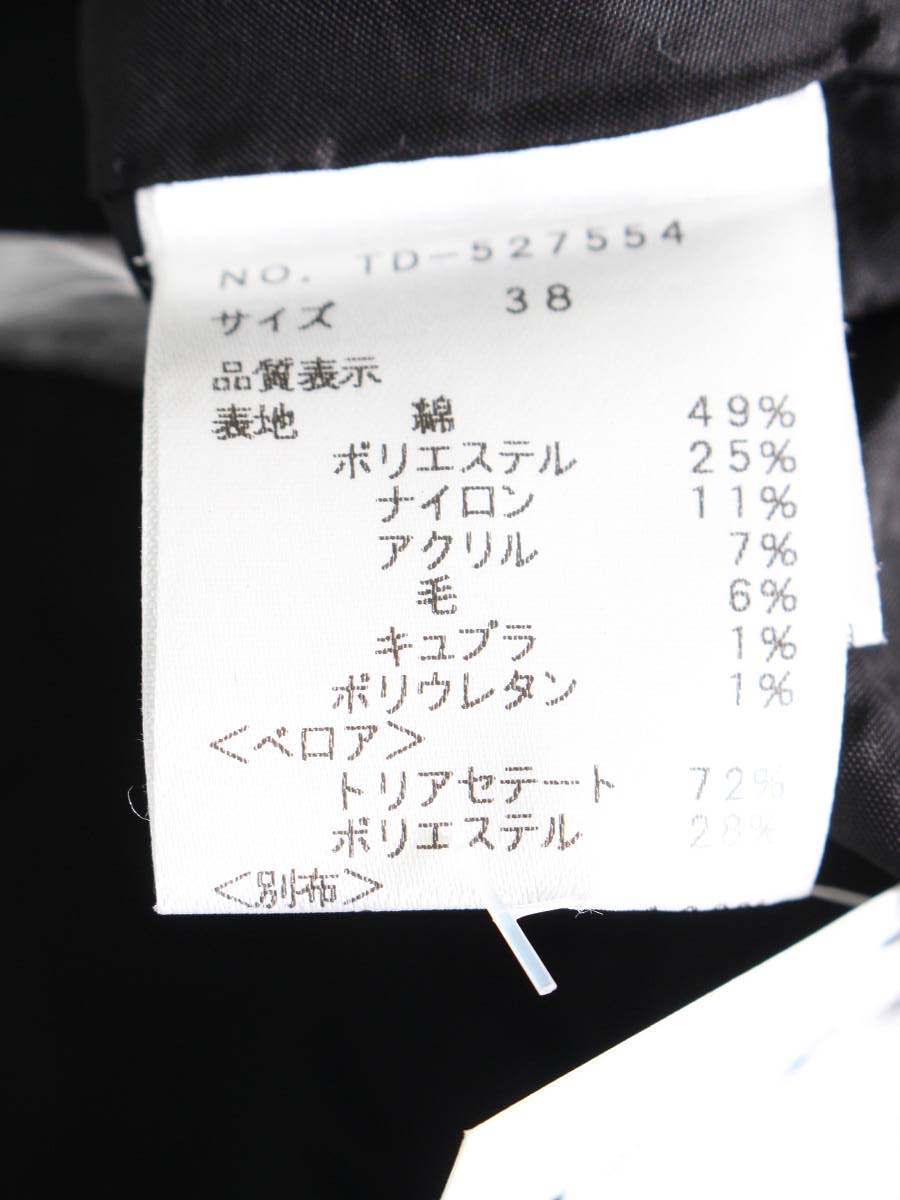 NO. TD-527554
サイズ 38
品質表示
表地 綿 49%
ポリエステル 25%
ナイロン 11%
アクリル 7%
毛 6%
キュプラ 1%
ポリウレタン 1%
<ベロア>
トリアセテート 72%
ポリエステル 28%
<別布>